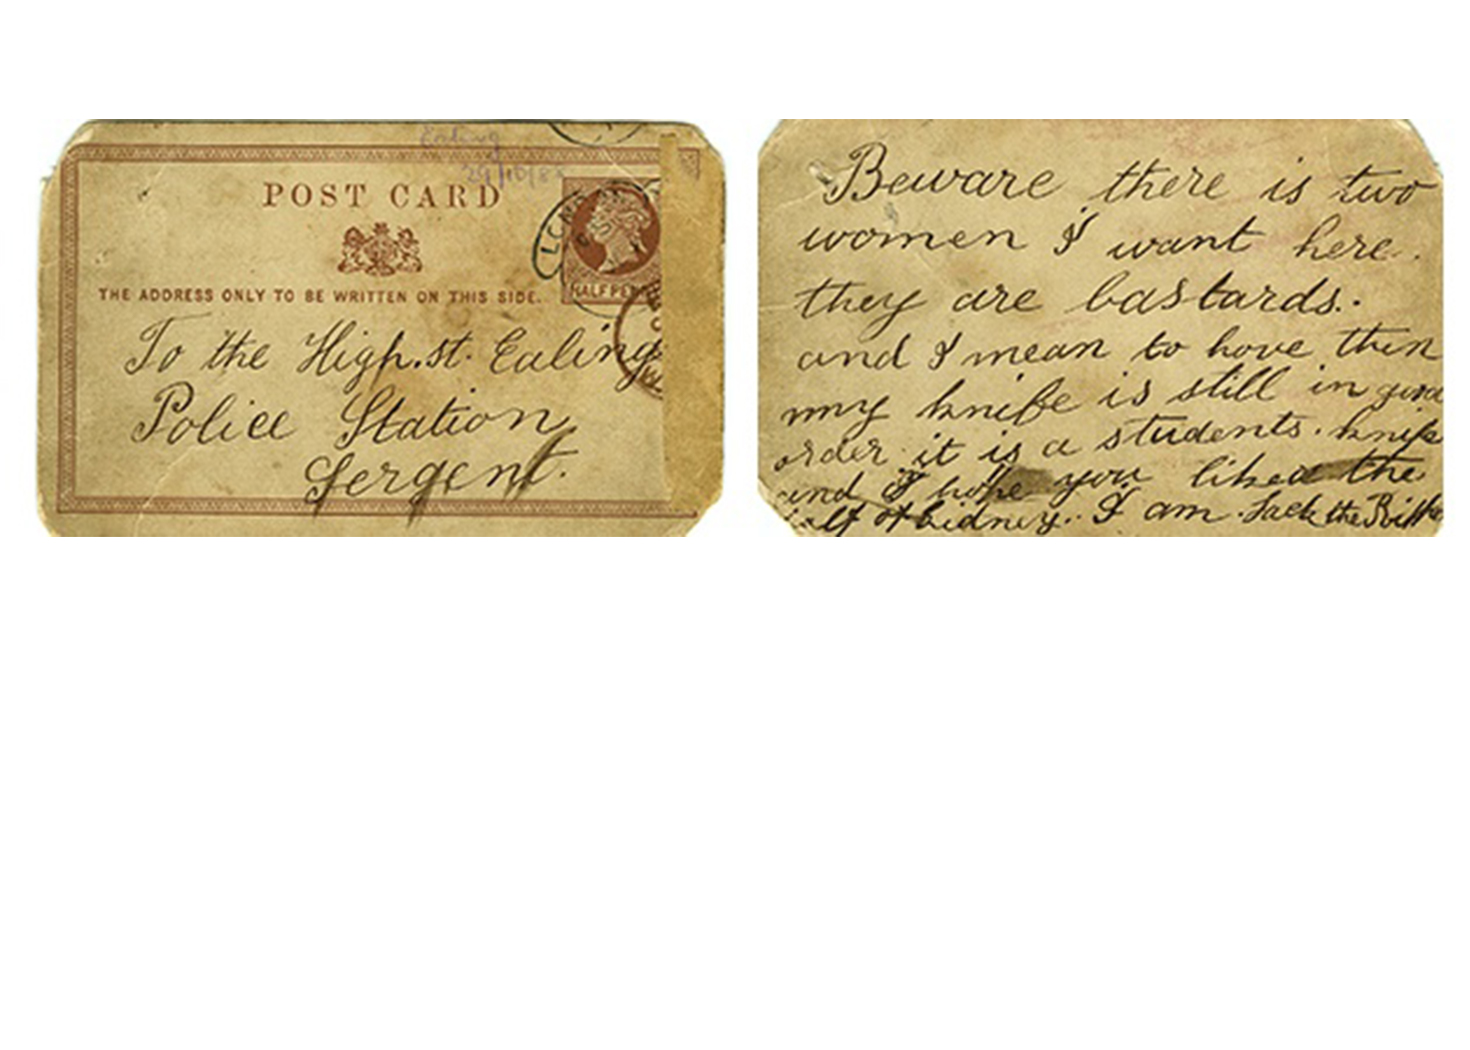 Ealing
29/10/88
POST CARD
THE ADDRESS ONLY TO BE WRITTEN ON THIS SIDE.
HALF PEN
To the High.st. Ealing
Police Station
Sergent.
Beware there is two
women I want here.
they are bastards.
and I mean to hove them
my knife is still in good
order it is a students. knife
and I hope you liked the
half of kidney.. I am. Jack the Ripper